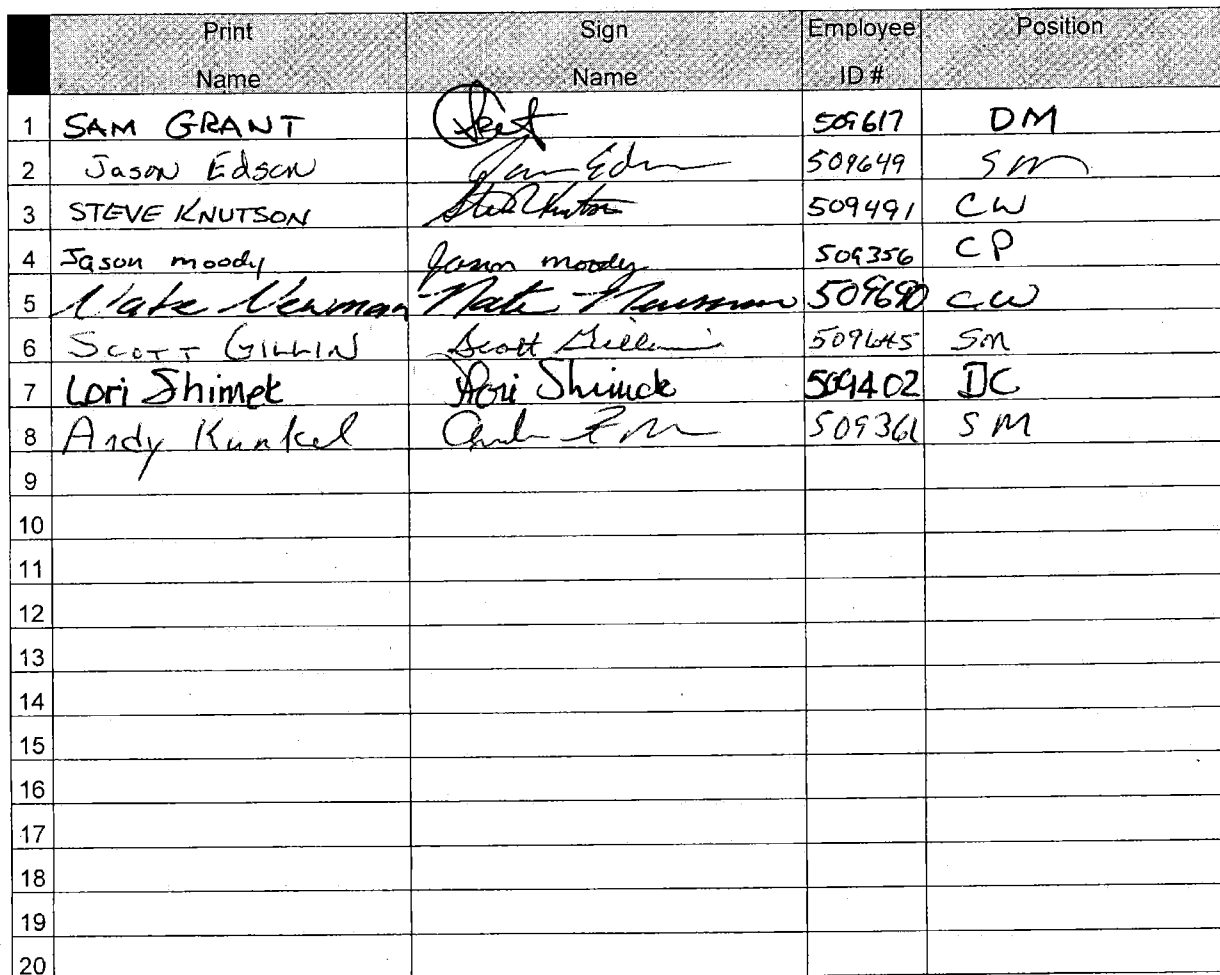 Print Sign Employee Position
Name Name ID #
1 SAM GRANT 509617 DM
2 Jason Edson Jason Edson 509649 SM
3 STEVE KNUTSON Steve Knutson 509491 CW
4 Jason moody Jason moody 509356 CP
5 Nate Newman Nate Newman 509690 CW
6 SCOTT GILLIN Scott Gillin 509645 Sm
7 Lori Shimek Lori Shimek 509402 DC
8 Andy Kunkel 509361 SM
9
10
11
12
13
14
15
16
17
18
19
20